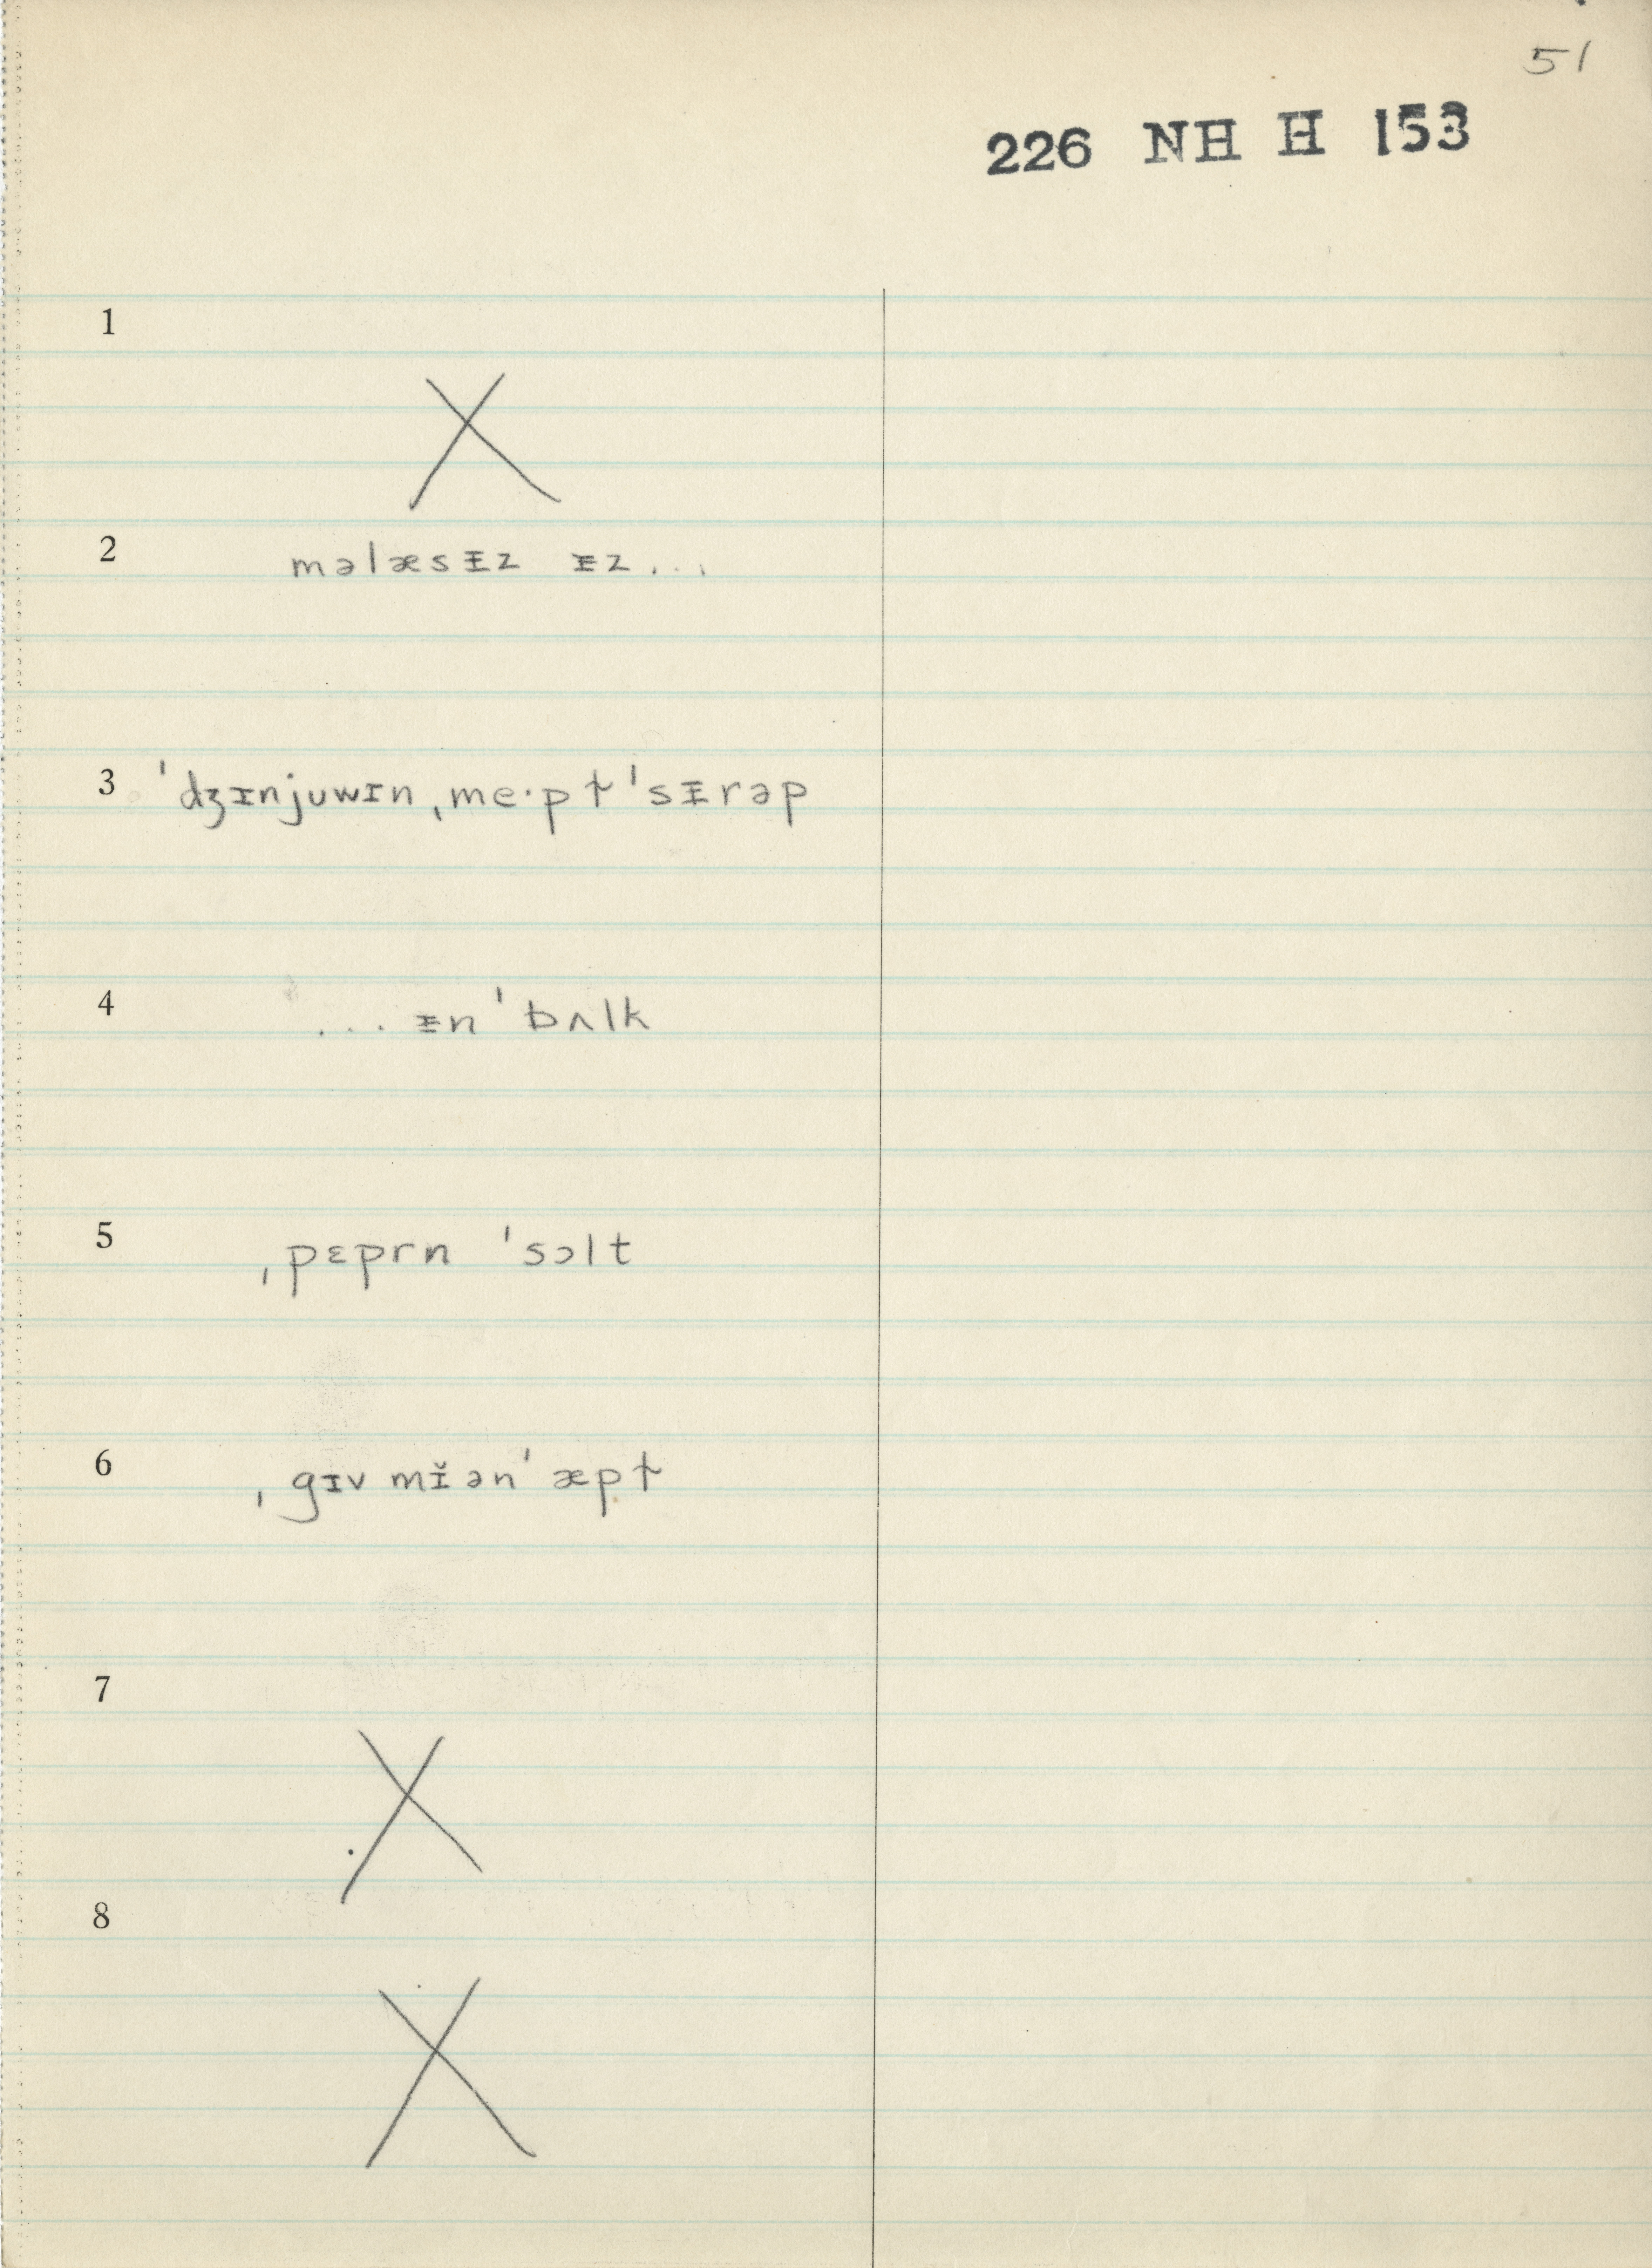 51
226 NH H 153
1
X
2 məlæsᵻz ᵻz...
3 ˈdʒɪnjuwɪn ˌme·pɫ ˈsᵻrəp
4 ... ᵻn ˈbʌlk
5 ˌpɛprn ˈsɔlt
6 ˌgɪv mɪ̆ ən ˈæpɫ
7
X
8
X